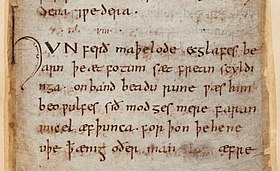 dena ⁊ ƿedera.
·viii·
HVN ferð maþelode ecglafes be
arn þe æt fotum sæt frean scyldi
nga. onband beadu rune ƿæs him
beoƿulfes sið modges mere faran
micel æfþunca. forþon þe he ne
uþe ꝥ ænig oðer man æfre